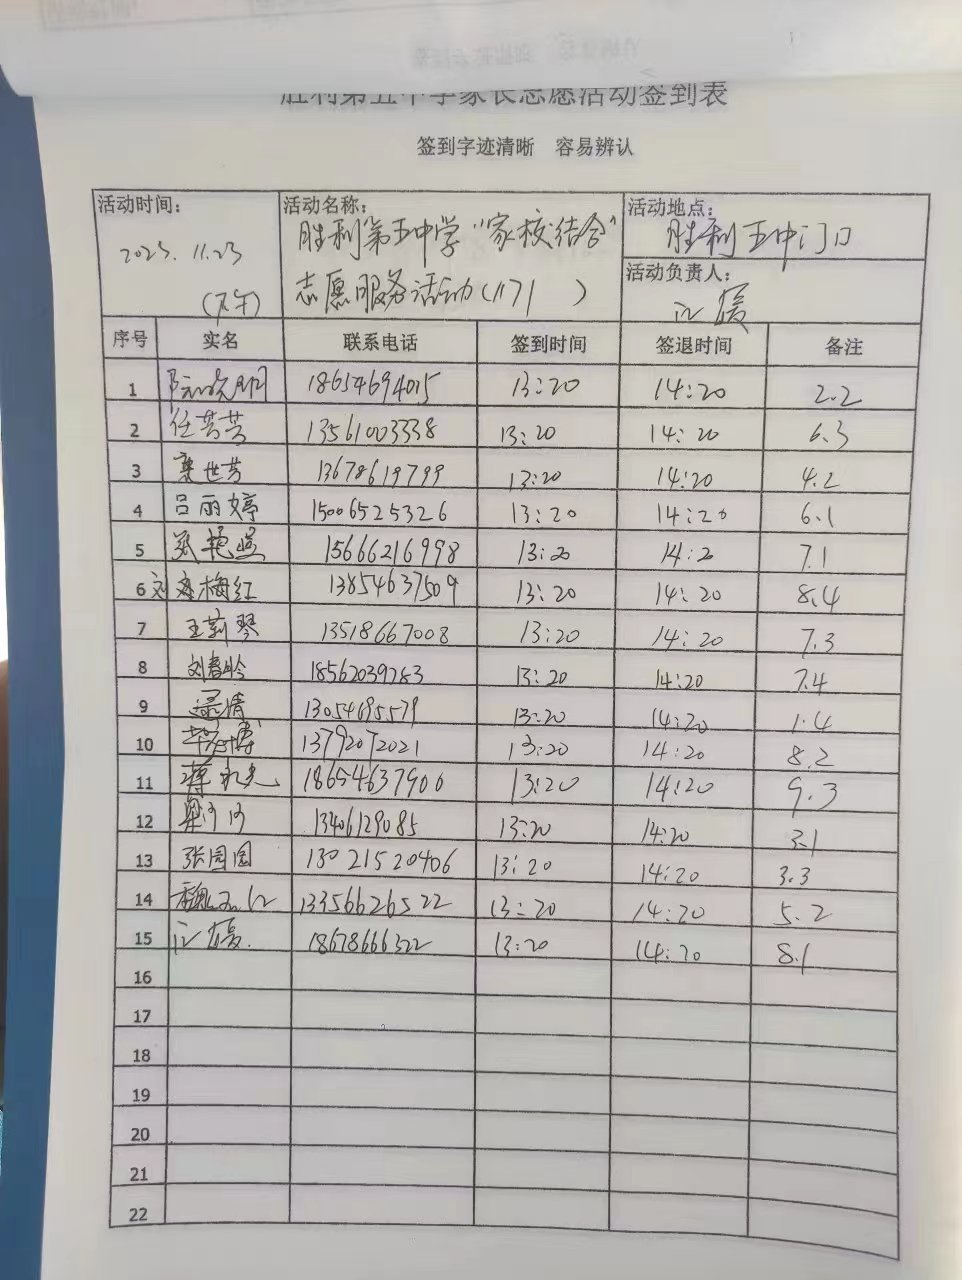 胜利第五中学家长志愿活动签到表
签到字迹清晰 容易辨认
活动时间: 2023.11.23 (下午)
活动名称: 胜利第五中学“家校结合”
志愿服务活动(1171 )
活动地点: 胜利五中门口
活动负责人:
序号 实名 联系电话 签到时间 签退时间 备注
1 18654694015 13:20 14:20 2.2
2 任芸芸 13561003338 13:20 14:20 6.3
3 世芳 13678619799 13:20 14:20 4.2
4 吕丽婷 15006525326 13:20 14:20 6.1
5 15666216998 13:20 14:2 7.1
6 刘 梅红 13854637509 13:20 14:20 8.4
7 王莉琴 13518667008 13:20 14:20 7.3
8 刘春玲 18562039283 13:20 14:20 7.4
9 清 13054695579 13:20 14:20 1.4
10 博 13792072021 13:20 14:20 8.2
11 蒋 18654637900 13:20 14:20 9.3
12 13406129085 13:20 14:20 3.1
13 张园园 13021520406 13:20 14:20 3.3
14 13356626522 13:20 14:20 5.2
15 18678666322 13:20 14:20 8.1
16
17
18
19
20
21
22